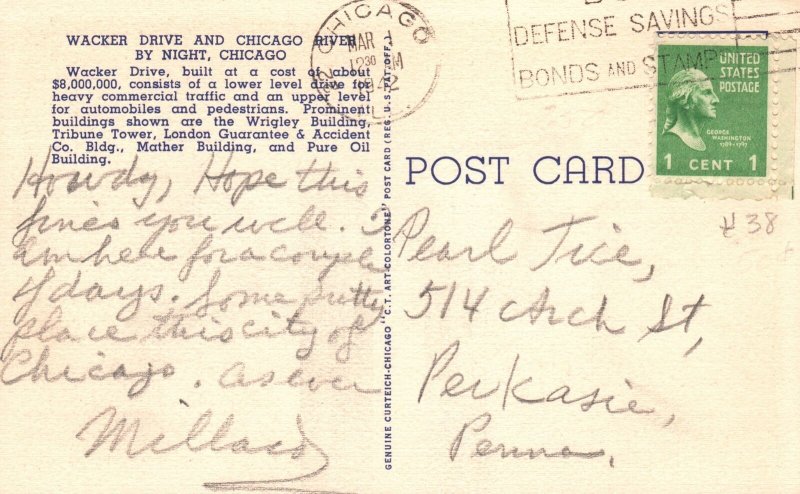 WACKER DRIVE AND CHICAGO RIVER
BY NIGHT, CHICAGO
Wacker Drive, built at a cost of about
$8,000,000, consists of a lower level drive for
heavy commercial traffic and an upper level
for automobiles and pedestrians. Prominent
buildings shown are the Wrigley Building,
Tribune Tower, London Guarantee & Accident
Co. Bldg., Mather Building, and Pure Oil
Building.
Howdy, Hope this
fines you well. I
am here for a couple
of days. Some pretty
place this city of
Chicago. as ever
Millard
GENUINE CURTEICH-CHICAGO "C.T. ART-COLORTONE" POST CARD (REG. U.S. PAT. OFF.)
CHICAGO
MAR 1
12 30 PM
1942
DEFENSE SAVINGS
BONDS AND STAMPS
UNITED
STATES
POSTAGE
GEORGE
WASHINGTON
1789-1797
1 CENT 1
POST CARD
#38
Pearl Tice,
514 Arch St,
Perkasie,
Penna.